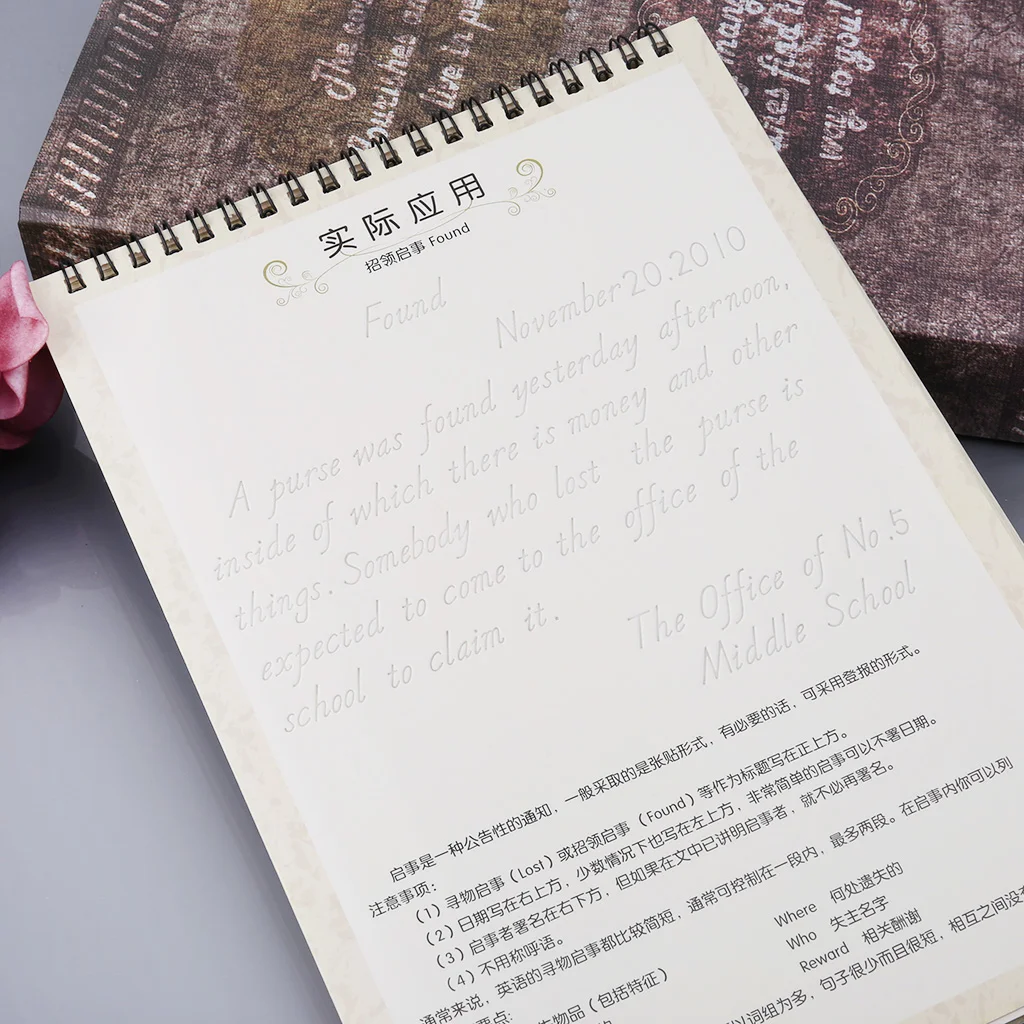 The
live in
mang
nes find th
way to you!
实际应用
招领启事 Found
Found
November 20.2010
A purse was found yesterday afternoon,
inside of which there is money and other
things. Somebody who lost the purse is
expected to come to the office of the
school to claim it.
The Office of No.5
Middle School
启事是一种公告性的通知，一般采取的是张贴形式，有必要的话，可采用登报的形式。
注意事项：
（1）寻物启事（Lost）或招领启事（Found）等作为标题写在正上方。
（2）日期写在右上方，少数情况下也写在左上方，非常简单的启事可以不署日期。
（3）启事者署名在右下方，但如果在文中已讲明启事者，就不必再署名。
（4）不用称呼语。
通常来说，英语的寻物启事都比较简短，通常可控制在一段内，最多两段。在启事内你可以列
要点：
Where 何处遗失的
物品（包括特征）
Who 失主名字
Reward 相关酬谢
以词组为多，句子很少而且很短，相互之间没